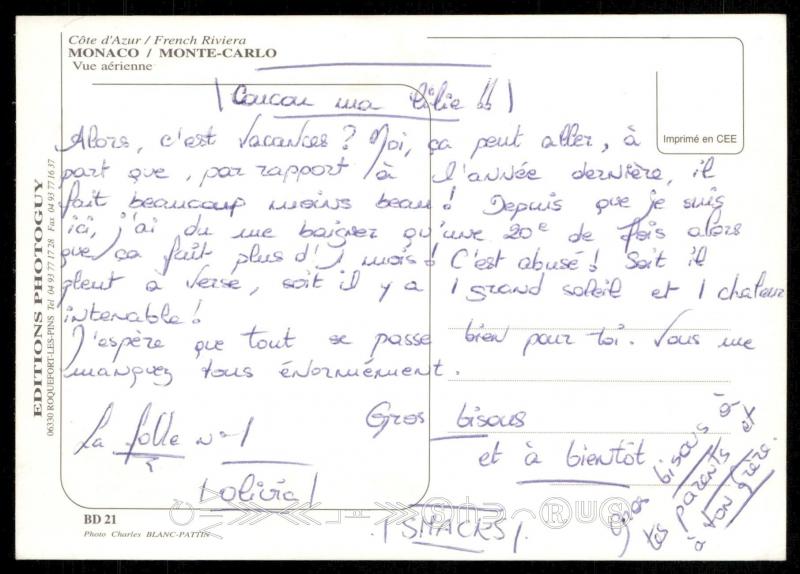 Côte d'Azur / French Riviera
MONACO / MONTE-CARLO
Vue aérienne
Imprimé en CEE
Coucou ma lilie !!
Alors, c'est vacances ? Moi, ça peut aller, à
part que, par rapport à l'année dernière, il
fait beaucoup moins beau ! Depuis que je suis
ici, j'ai du me baigner qu'une 20e de fois alors
que ça fait plus d'1 mois ! C'est abusé ! Soit il
pleut à verse, soit il y a 1 grand soleil et 1 chaleur
intenable !
J'espère que tout se passe bien pour toi. Vous me
manquez tous énormément.
Gros bisous
et à bientôt
La folle n°1
Olivia
SMACKS
Gros bisous à
tes parents et
à ton frère.
EDITIONS PHOTOGUY
06330 ROQUEFORT-LES-PINS Tél 04 93 77 17 28 Fax 04 93 77 16 37
BD 21
Photo Charles BLANC-PATTIN